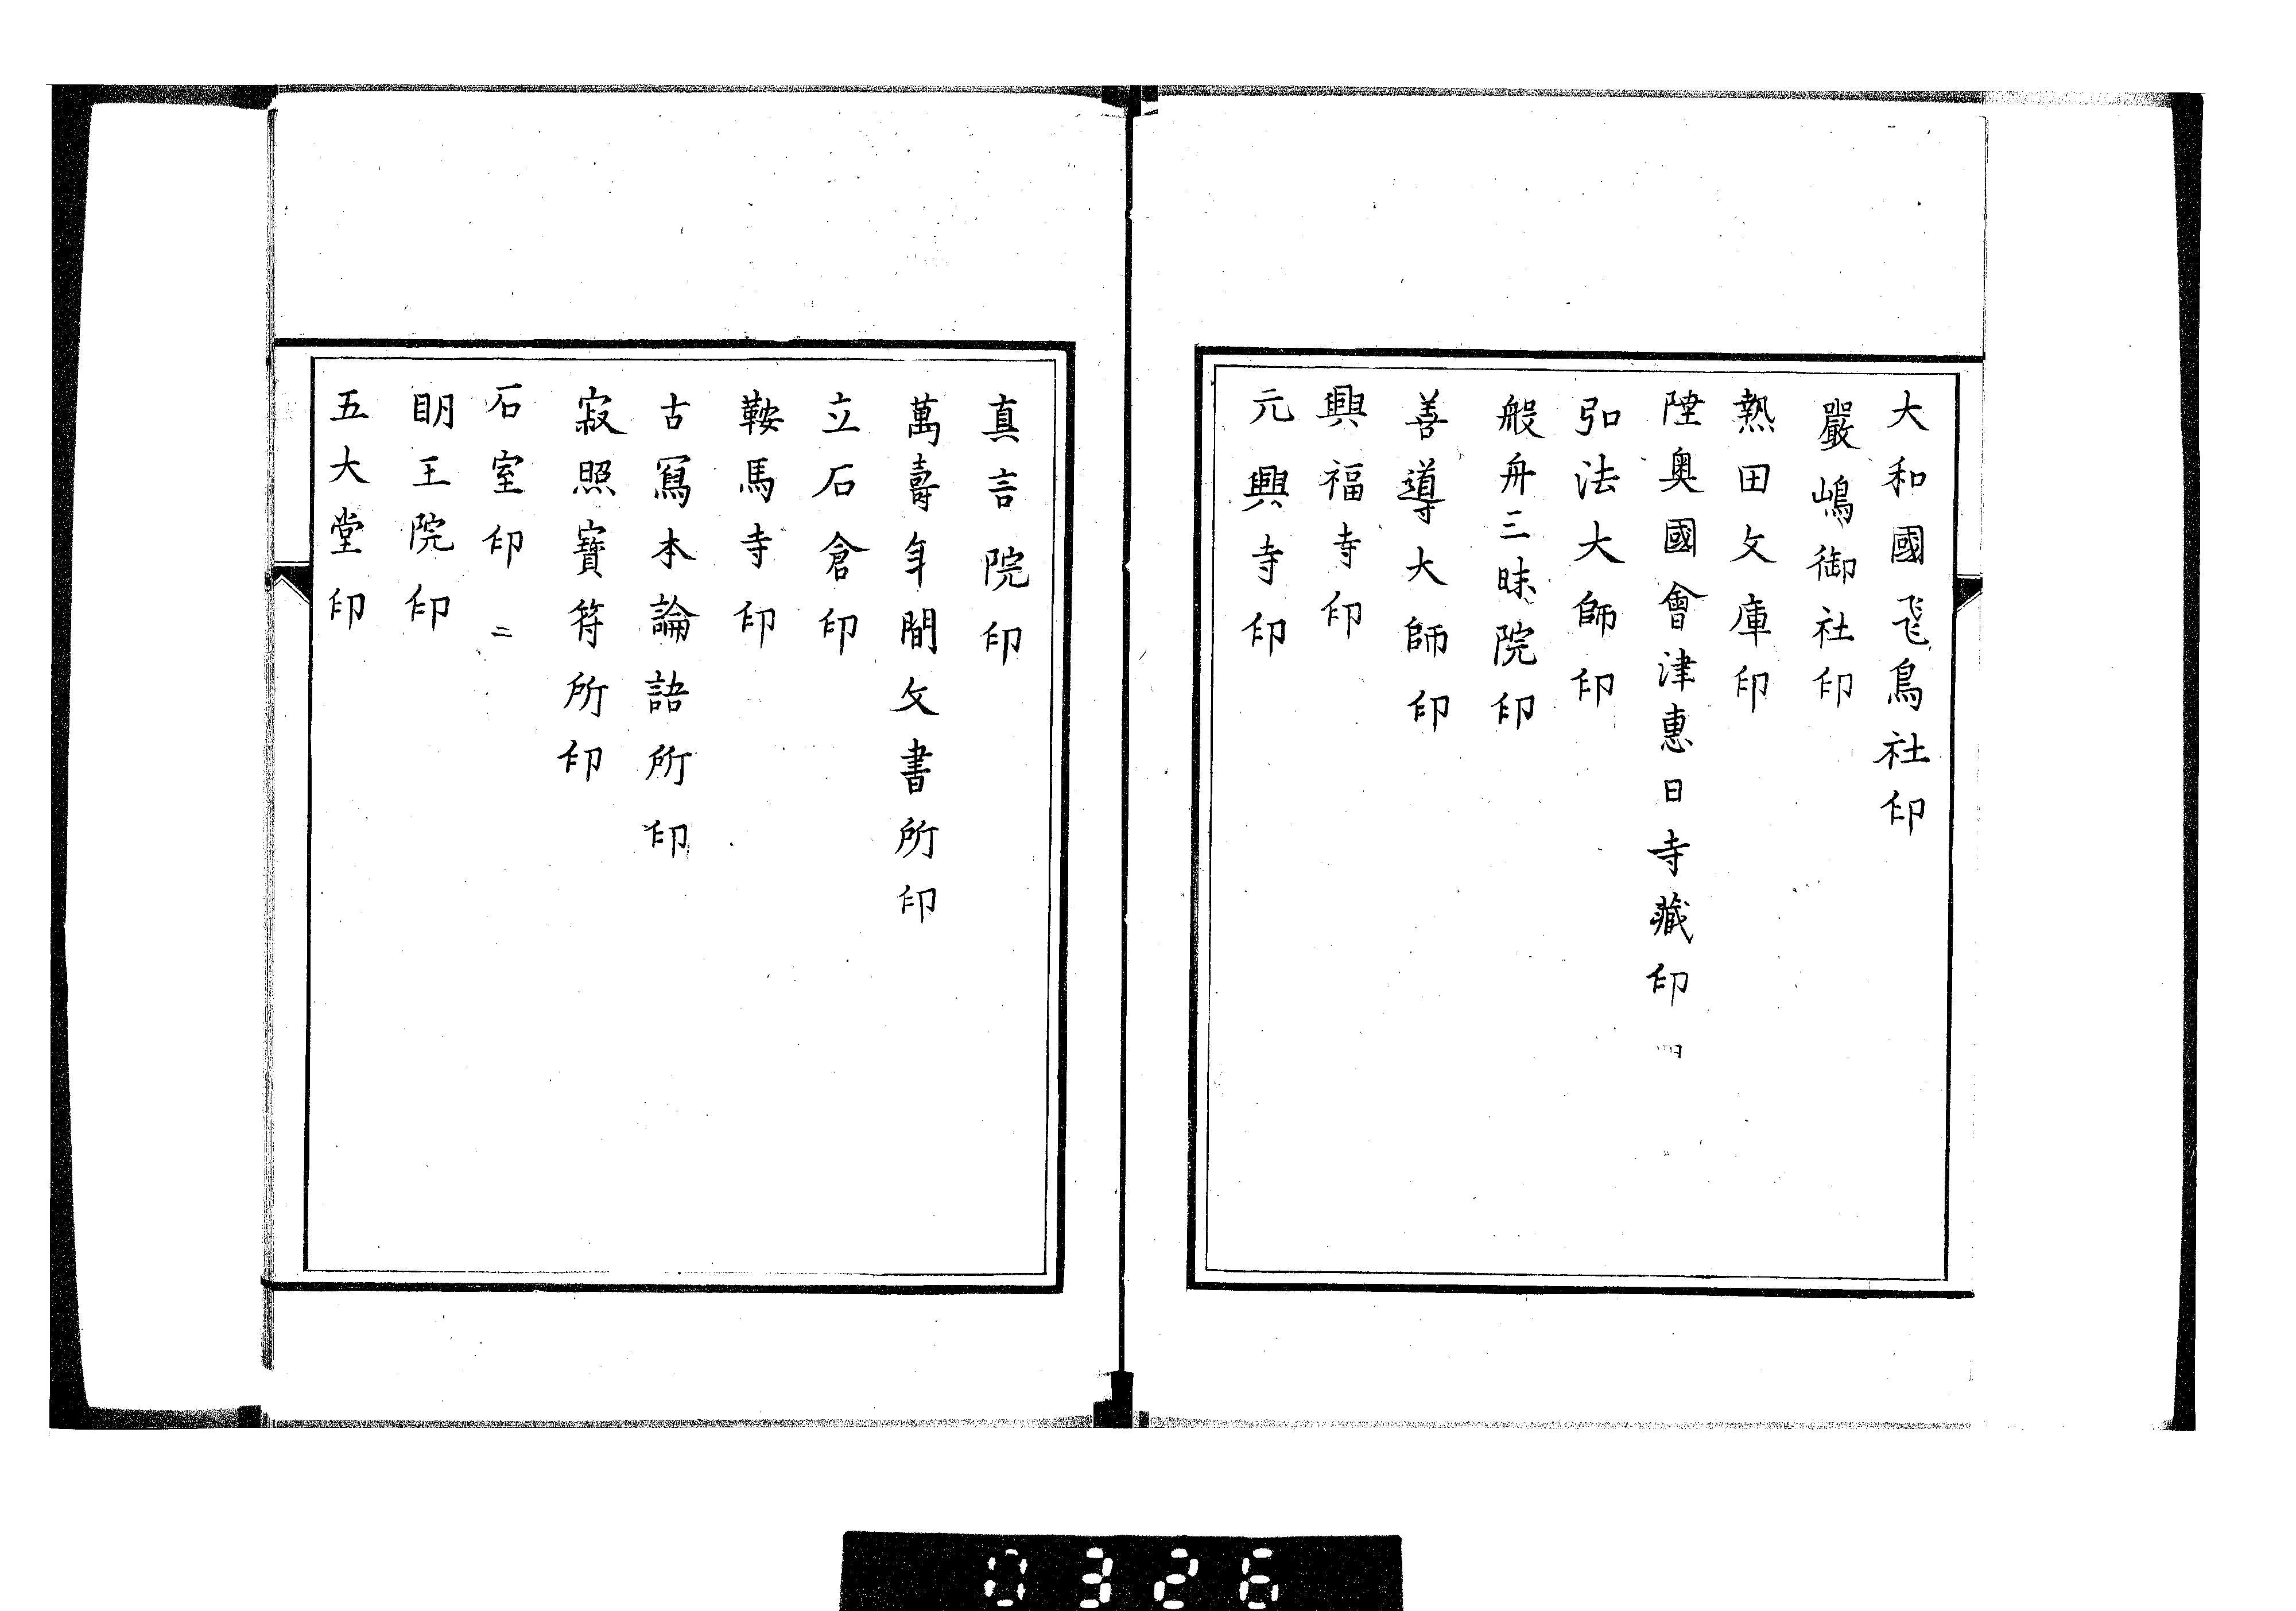 大和國飛鳥社印
嚴嶋御社印
熱田文庫印
陸奥國會津惠日寺藏印 四
弘法大師印
般舟三昧院印
善導大師印
興福寺印
元興寺印
真言院印
萬壽年間文書所印
立石倉印
鞍馬寺印
古寫本論語所印
寂照寶符所印
石室印 二
明王院印
五大堂印
0326